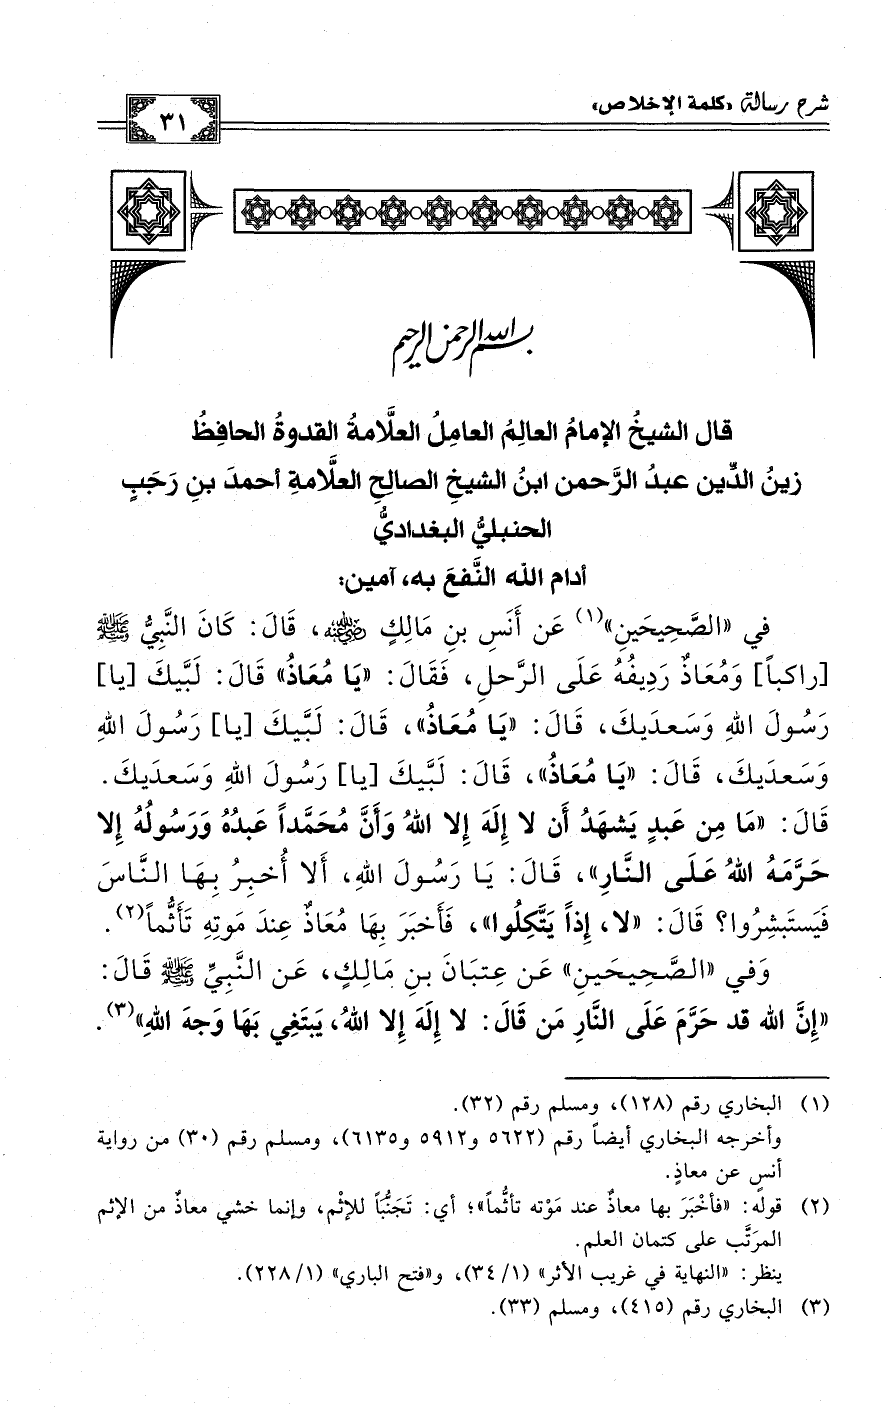 شرح رسالة «كلمة الإخلاص»
٣١
بسم الله الرحمن الرحيم
قال الشيخُ الإمامُ العالِمُ العامِلُ العلَّامةُ القدوةُ الحافِظُ
زينُ الدِّين عبدُ الرَّحمن ابنُ الشيخِ الصالحِ العلَّامةِ أحمدَ بنِ رَجَبٍ
الحنبليُّ البغداديُّ
أدام الله النَّفعَ به، آمين:
في «الصَّحِيحَينِ»(١) عَن أَنَسِ بنِ مَالِكٍ رضي الله عنه، قَالَ: كَانَ النَّبِيُّ ﷺ
[راكباً] وَمُعَاذٌ رَدِيفُهُ عَلَى الرَّحلِ، فَقَالَ: «يَا مُعَاذُ» قَالَ: لَبَّيكَ [يا]
رَسُولَ اللهِ وَسَعدَيكَ، قَالَ: «يَا مُعَاذُ»، قَالَ: لَبَّيكَ [يا] رَسُولَ اللهِ
وَسَعدَيكَ، قَالَ: «يَا مُعَاذُ»، قَالَ: لَبَّيكَ [يا] رَسُولَ اللهِ وَسَعدَيكَ.
قَالَ: «مَا مِن عَبدٍ يَشهَدُ أَن لا إِلَهَ إِلا اللهُ وَأَنَّ مُحَمَّداً عَبدُهُ وَرَسُولُهُ إِلا
حَرَّمَهُ اللهُ عَلَى النَّارِ»، قَالَ: يَا رَسُولَ اللهِ، أَلا أُخبِرُ بِهَا النَّاسَ
فَيَستَبشِرُوا؟ قَالَ: «لا، إِذاً يَتَّكِلُوا»، فَأَخبَرَ بِهَا مُعَاذٌ عِندَ مَوتِهِ تَأَثُّماً(٢).
وَفي «الصَّحِيحَينِ» عَن عِتبَانَ بنِ مَالِكٍ، عَن النَّبِيِّ ﷺ قَالَ:
«إِنَّ الله قد حَرَّمَ عَلَى النَّارِ مَن قَالَ: لا إِلَهَ إِلا اللهُ، يَبتَغِي بَهَا وَجهَ اللهِ»(٣).
(١) البخاري رقم (١٢٨)، ومسلم رقم (٣٢).
وأخرجه البخاري أيضاً رقم (٥٦٢٢ و٥٩١٢ و٦١٣٥)، ومسلم رقم (٣٠) من رواية
أنسٍ عن معاذٍ.
(٢) قوله: «فأخْبَرَ بها معاذٌ عند مَوْته تأثُّماً»؛ أي: تَجَنُّبَاً للإثْم، وإنما خشي معاذٌ من الإثم
المرَتَّب على كتمان العلم.
ينظر: «النهاية في غريب الأثر» (٣٤/١)، و«فتح الباري» (٢٢٨/١).
(٣) البخاري رقم (٤١٥)، ومسلم (٣٣).